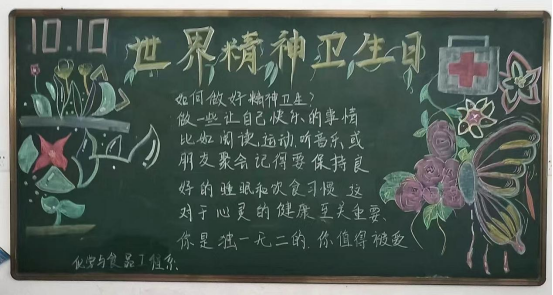 10.10
世界精神卫生日
如何做好精神卫生?
做一些让自己快乐的事情
比如阅读、运动、听音乐、或
朋友聚会记得要保持良
好的睡眠和饮食习惯 这
对于心灵的健康至关重要.
你是独一无二的.你值得被爱
化学与食品工程系